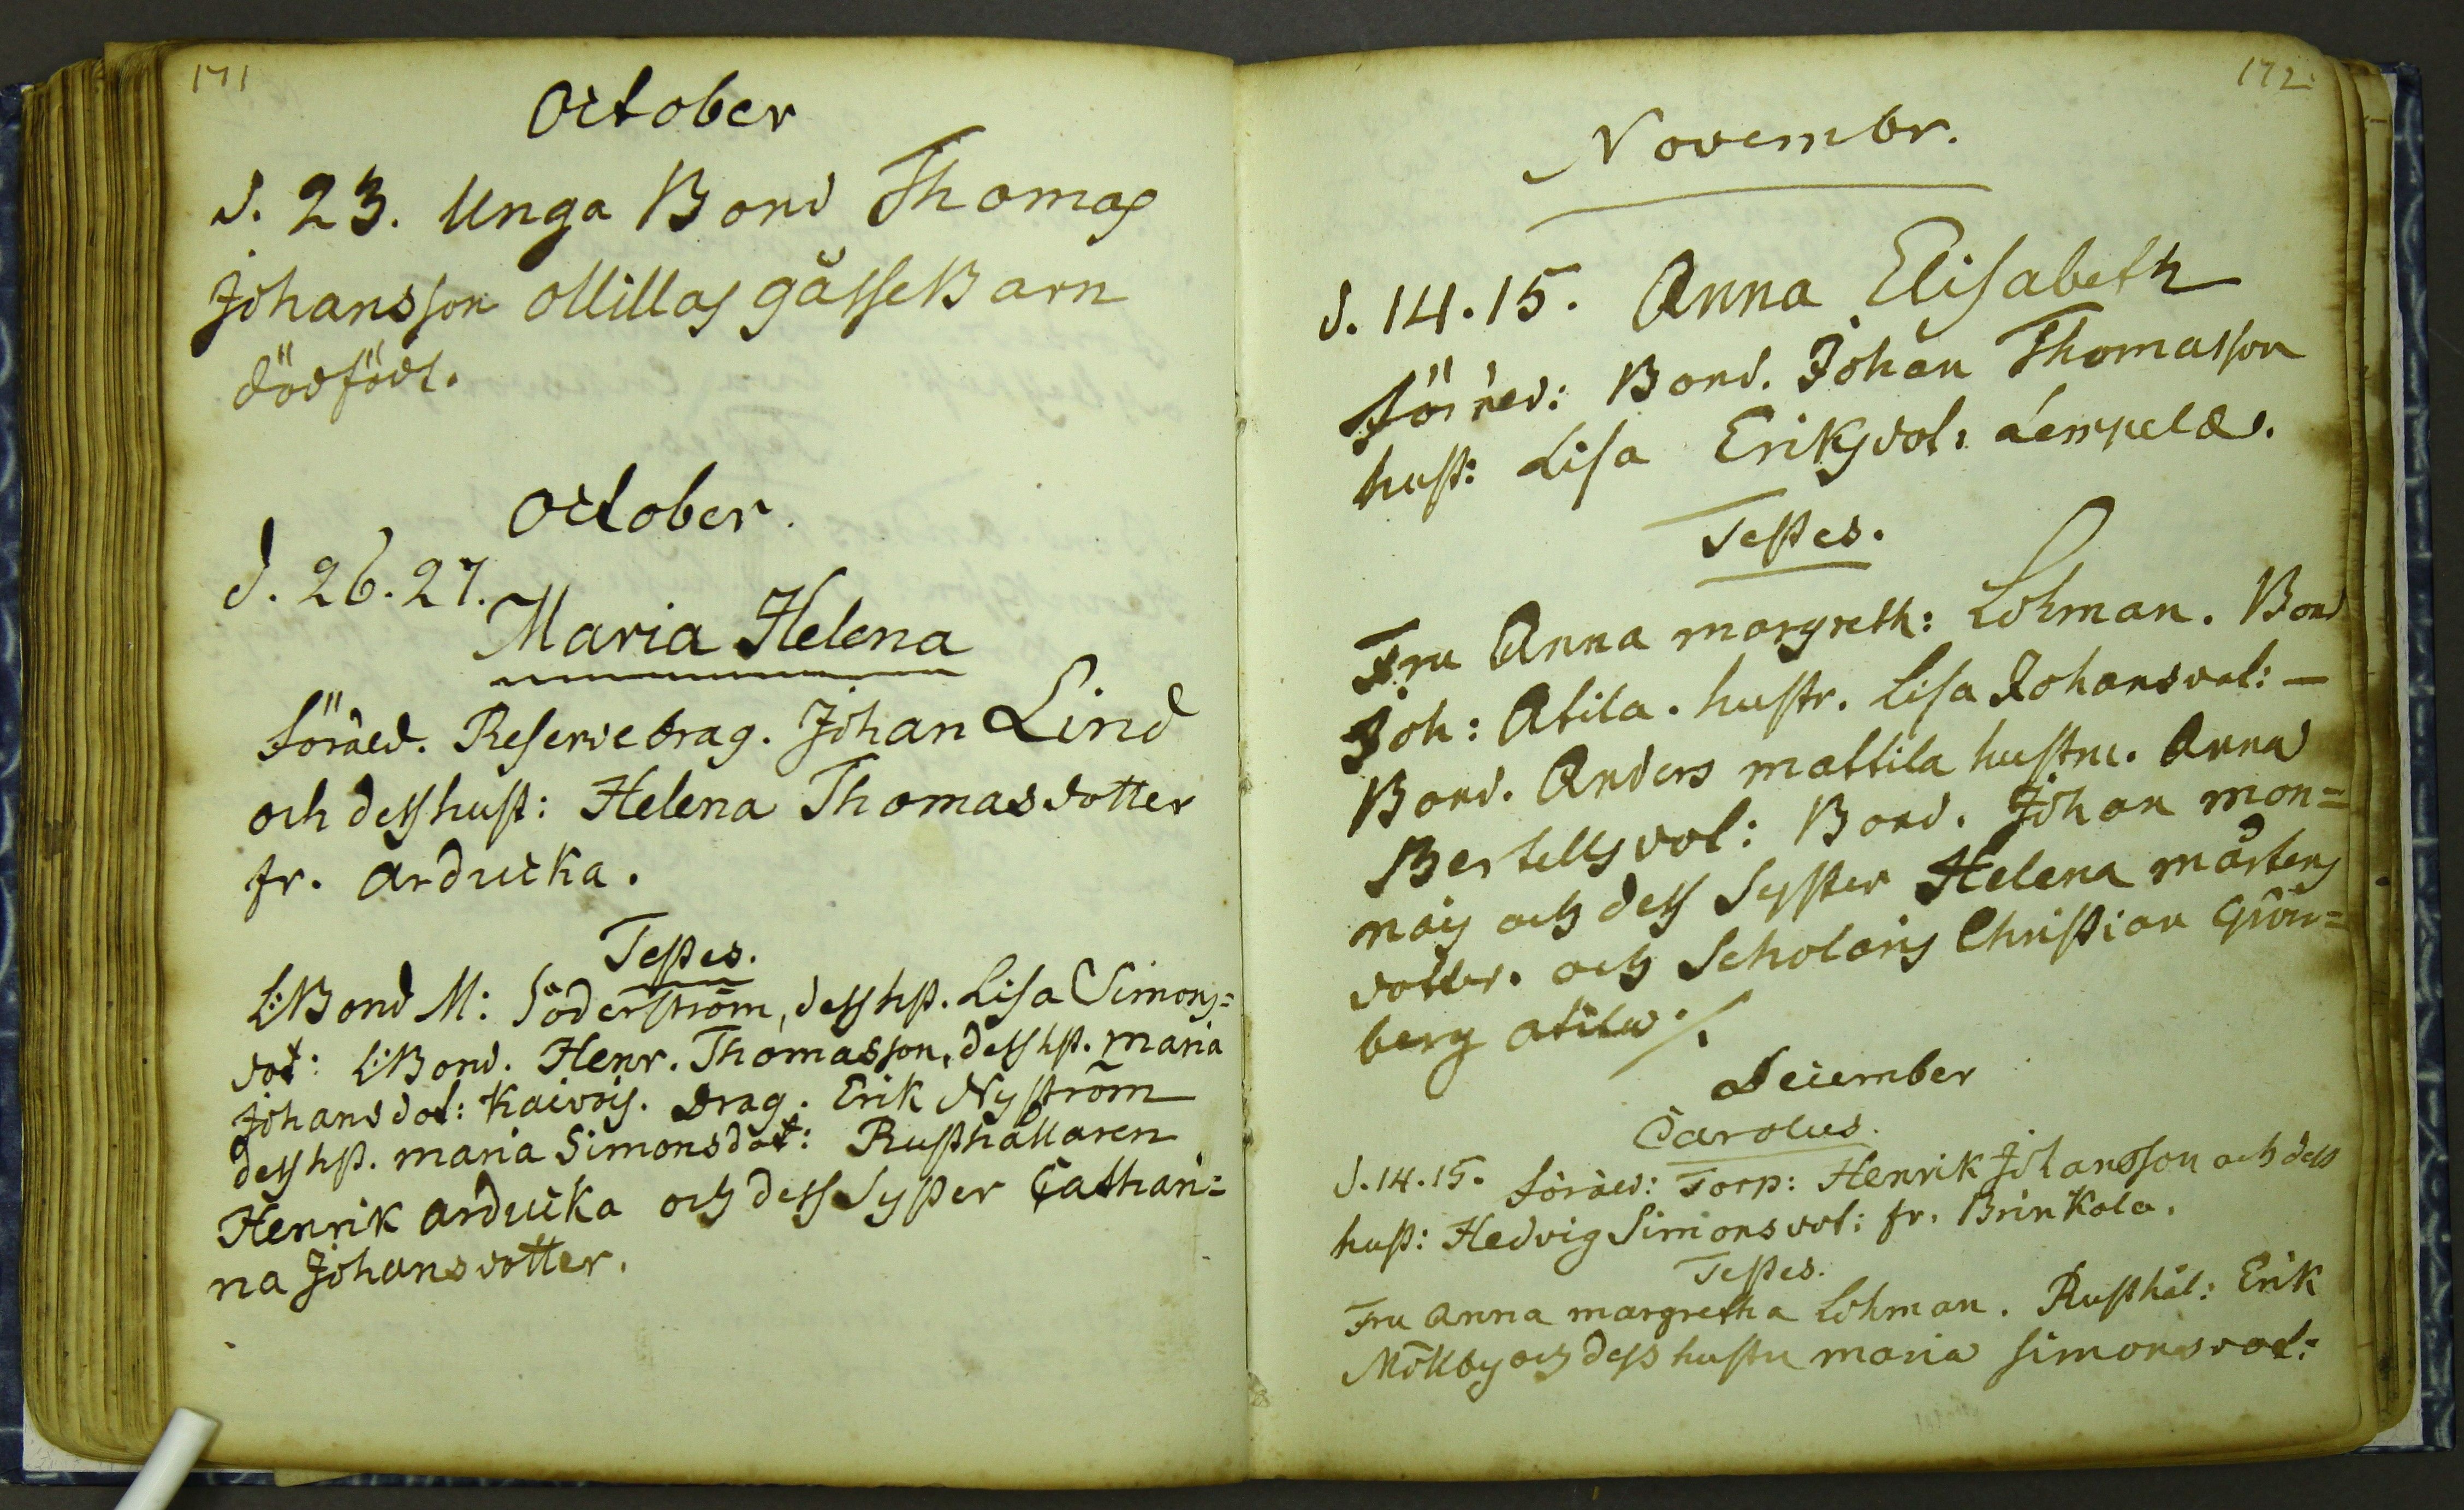 171
October
d. 23. Unga Bond Thomas
Johansson Ollilas gåsseBarn
dödfödt.
October.
d. 26. 27.
Maria Helena
föräld. Reservedrag. Johan Lind
och dess hust: Helena Thomasdotter
fr. arduicka.
Testes.
L:Bond M: Söderström, dess hst. Lisa Simons=
dot: L:Bond. Henr. Thomasson, dess hst. maria
Johansdot: Kaivois. Drag. Erik Nyström
dess hst. maria Simonsdot: Rusthållaren
Henrik arduicka och dess Syster Cathari=
na Johansdotter.
172
Novembr.
d. 14. 15. Anna Elisabeth
föräld: Bond. Johan Thomasson
hust: Lisa Eriksdot: Lempelä.
Testes.
Fru Anna margreth: Lohman. Bond
Joh: Atila. hustr. Lisa Johansdot: —
Bond. Anders mattila hustru. Anna
Bertellsdot: Bond. Johan mon=
nois och dess Syster Helena mårtens
dotter. och Scholaris Christian Grön=
berg atila ./.
December
Carolus.
d. 14. 15. föräld: Torp: Henrik Johansson och dess
hust: Hedvig Simonsdot: fr. Brinkala.
Testes.
Fru Anna margretha Lohman. Rusthål: Erik
Möllby och dess hustru maria simonsdot: